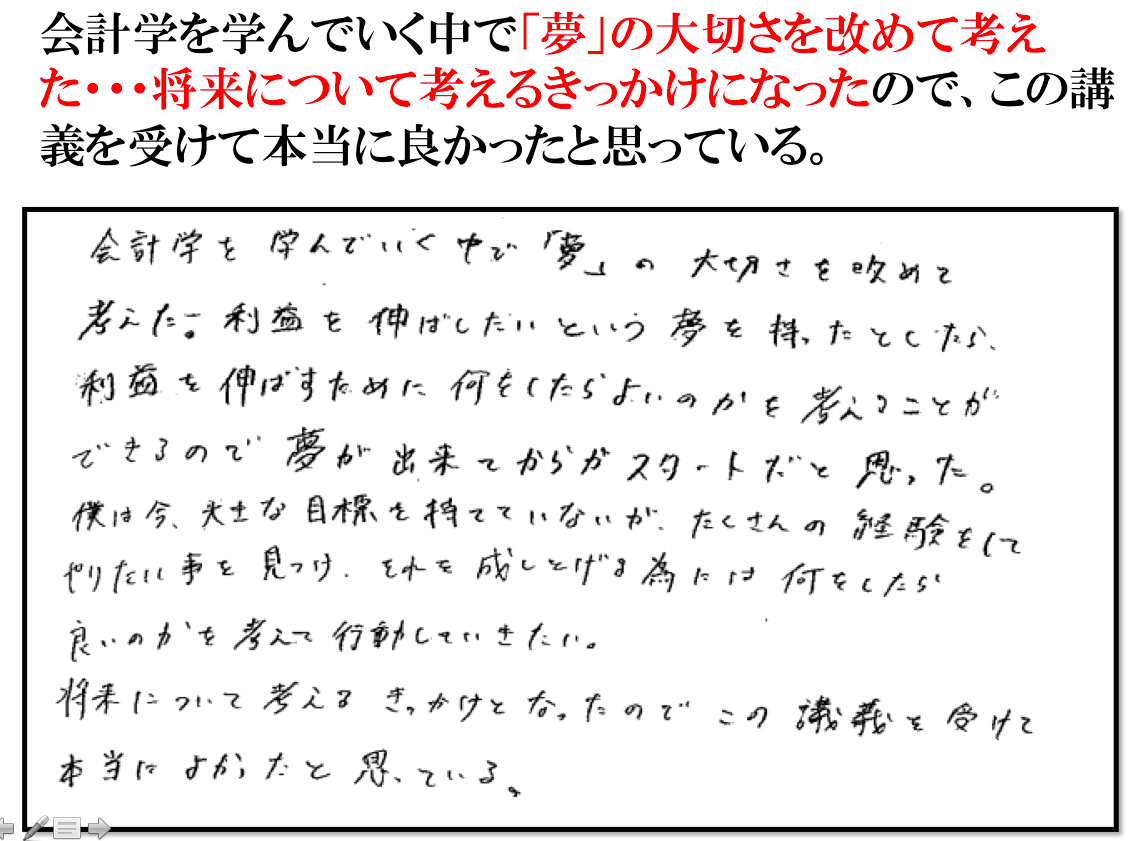 会計学を学んでいく中で「夢」の大切さを改めて考え
た・・・将来について考えるきっかけになったので、この講
義を受けて本当に良かったと思っている。
会計学を学んでいく中で「夢」の大切さを改めて
考えた。利益を伸ばしたいという夢を持ったとしたら、
利益を伸ばすために何をしたらよいのかを考えることが
できるので夢が出来てからがスタートだと思った。
僕は今、大きな目標を持てていないが、たくさんの経験をして
やりたい事を見つけ、それを成しとげる為には何をしたら
良いのかを考えて行動していきたい。
将来について考えるきっかけとなったのでこの講義を受けて
本当によかったと思っている。